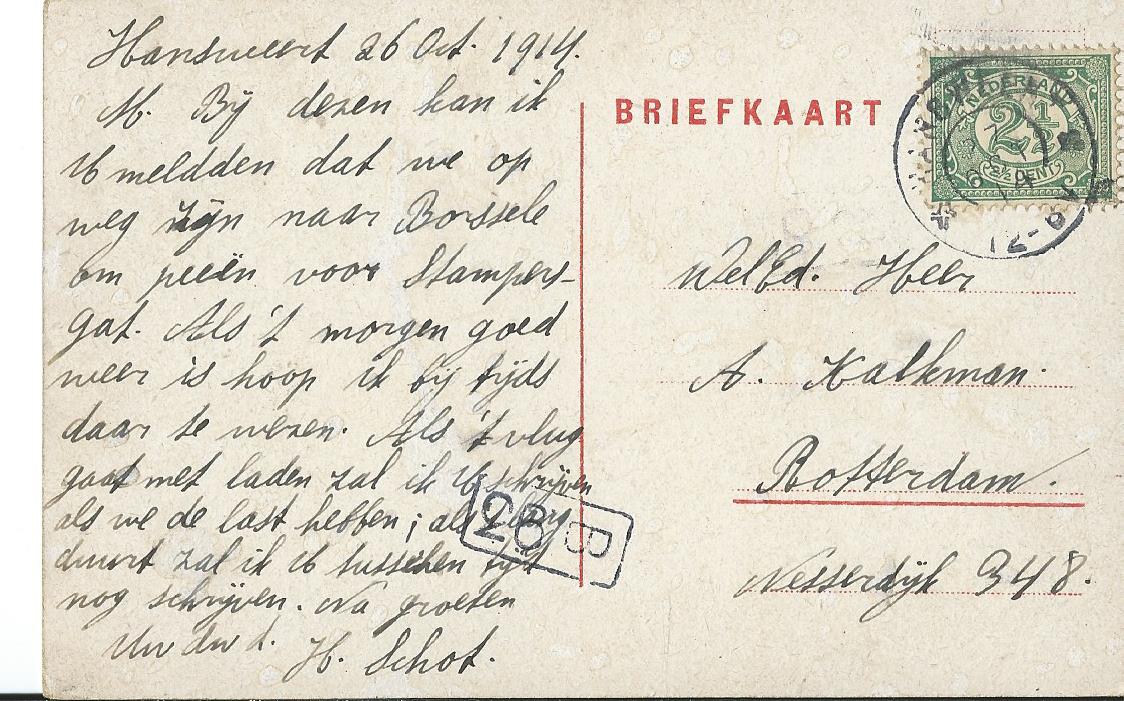 Hansweert 26 Oct. 1914.
M. Bij dezen kan ik
U meldden dat we op
weg zijn naar Borssele
om peeën voor Stampers-
gat. Als 't morgen goed
weer is hoop ik bij tijds
daar te wezen. Als 't vlug
gaat met laden zal ik U schrijven
als we de last hebben; als lang
duurt zal ik U tusschen tijd
nog schrijven. Na groeten
Uw dw d. H. Schot.
BRIEFKAART
NEDERLAND
2½
2½ CENT
12-6N
WelEd. Heer
A. Kalkman.
Rotterdam.
Nesserdijk 348.
28 B